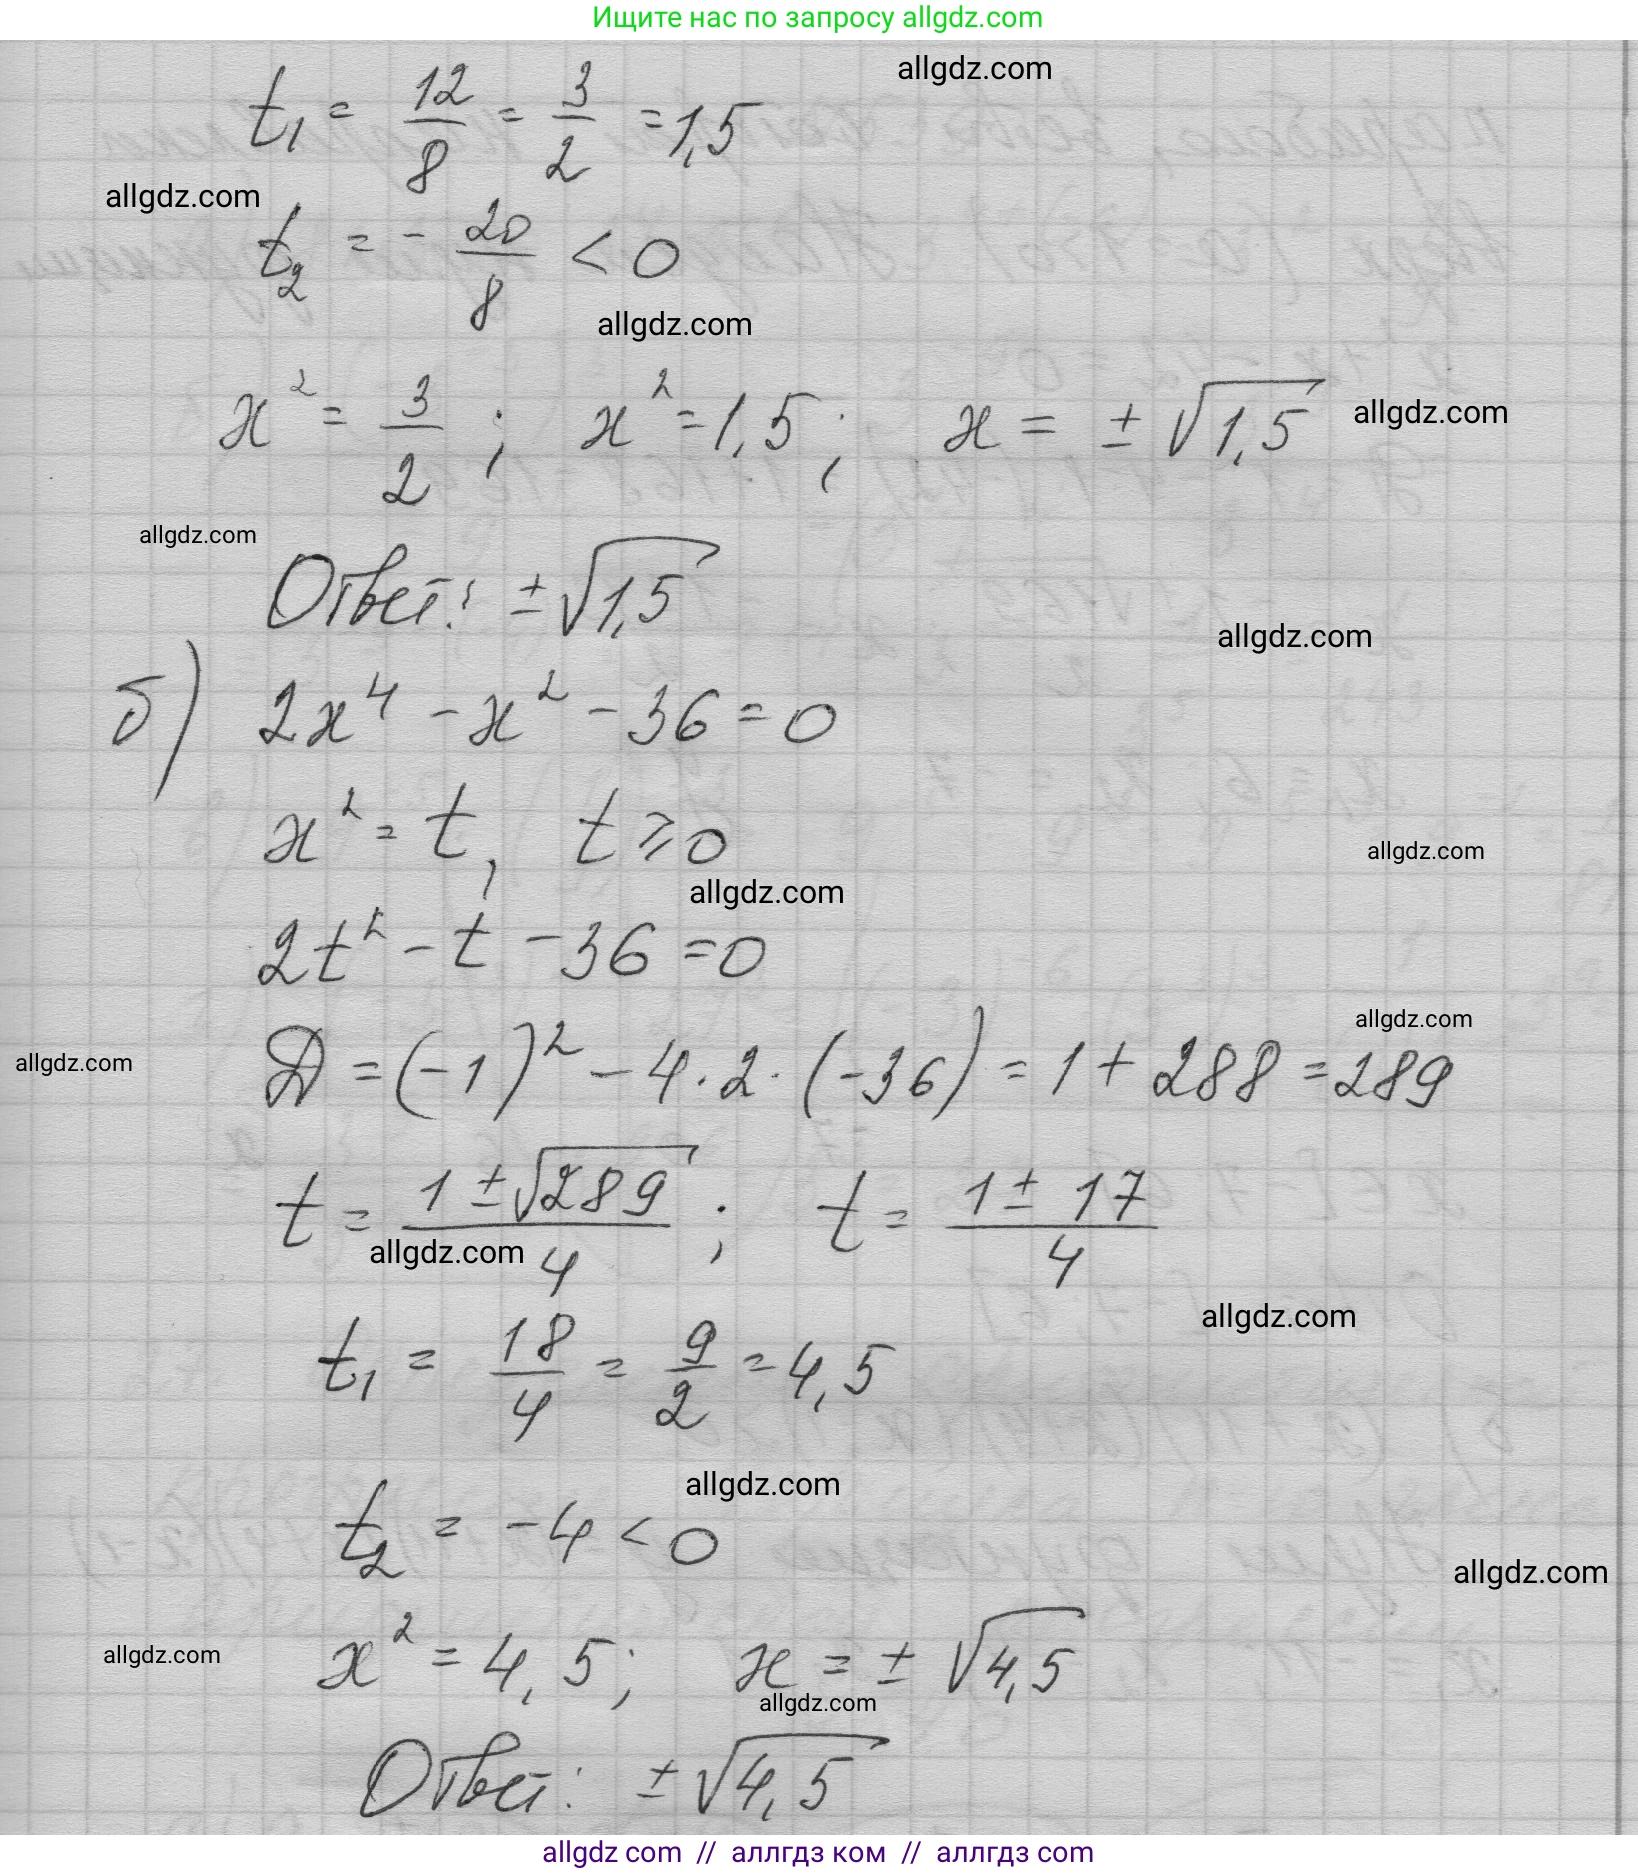 Ищите нас по запросу allgdz.com
allgdz.com
t₁ = 12/8 = 3/2 = 1,5
allgdz.com
t₂ = - 20/8 < 0
allgdz.com
x² = 3/2 ; x² = 1,5 ; x = ± √1,5
allgdz.com
allgdz.com
Ответ: ± √1,5
allgdz.com
б) 2x⁴ - x² - 36 = 0
x² = t, t ⩾ 0
allgdz.com
allgdz.com
2t² - t - 36 = 0
allgdz.com
D = (-1)² - 4 · 2 · (-36) = 1 + 288 = 289
allgdz.com
t = (1 ± √289)/4 ; t = (1 ± 17)/4
allgdz.com
allgdz.com
t₁ = 18/4 = 9/2 = 4,5
allgdz.com
t₂ = -4 < 0
allgdz.com
x² = 4,5 ; x = ± √4,5
allgdz.com
allgdz.com
Ответ: ± √4,5
allgdz com // аллгдз ком // аллгдз com